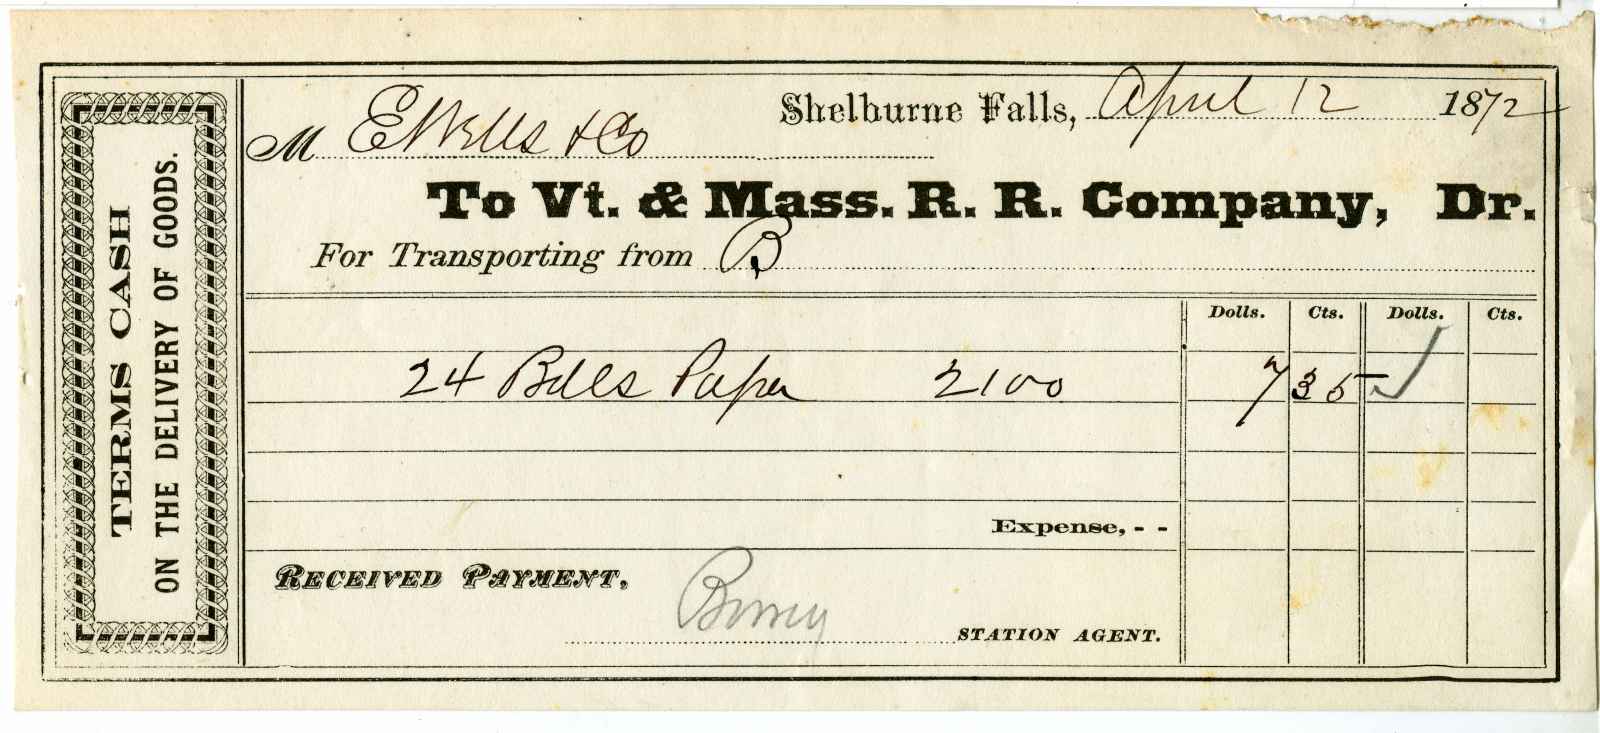 TERMS CASH
ON THE DELIVERY OF GOODS.
Shelburne Falls, April 12 1872
M E Wells & Co
To Vt. & Mass. R. R. Company, Dr.
For Transporting from B
Dolls. Cts. Dolls. Cts.
24 Bdls Paper 2100 7 35 ✓
Expense, - -
RECEIVED PAYMENT,
STATION AGENT.